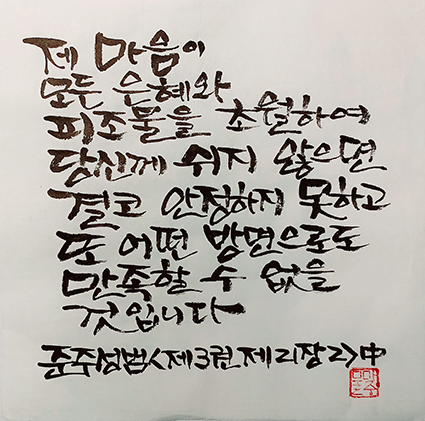 제 마음이
모든 은혜와
피조물을 초월하여
당신께 쉬지 않으면
결코 안정하지 못하고
또 어떤 방면으로도
만족할 수 없을
것입니다
준주성범<제3권 제21장 2>中